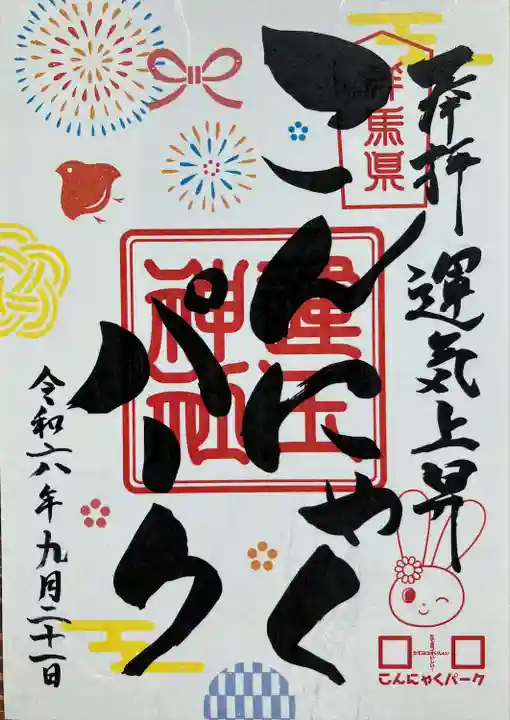 奉拝
運気上昇
群馬県
こんにゃく
パーク
神社
令和六年九月二十一日
こんにゃくパーク